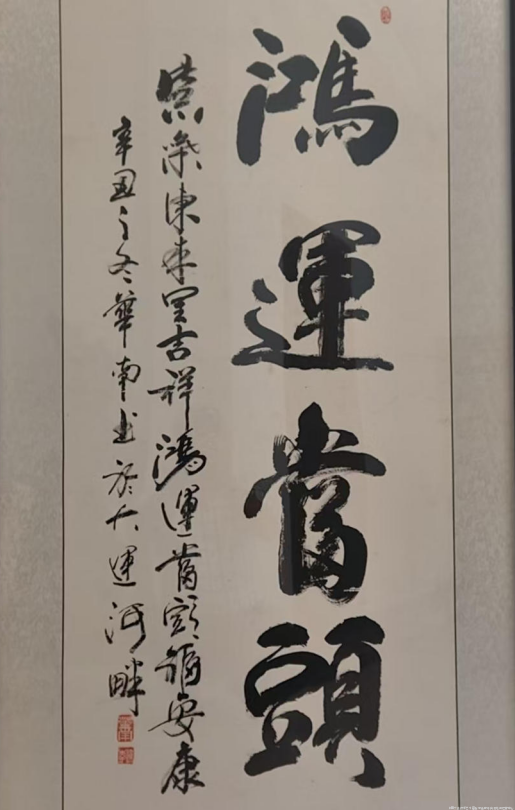 鴻運當頭
紫氣東來呈吉祥鴻運當頭福安康
辛丑之冬華南書於大運河畔